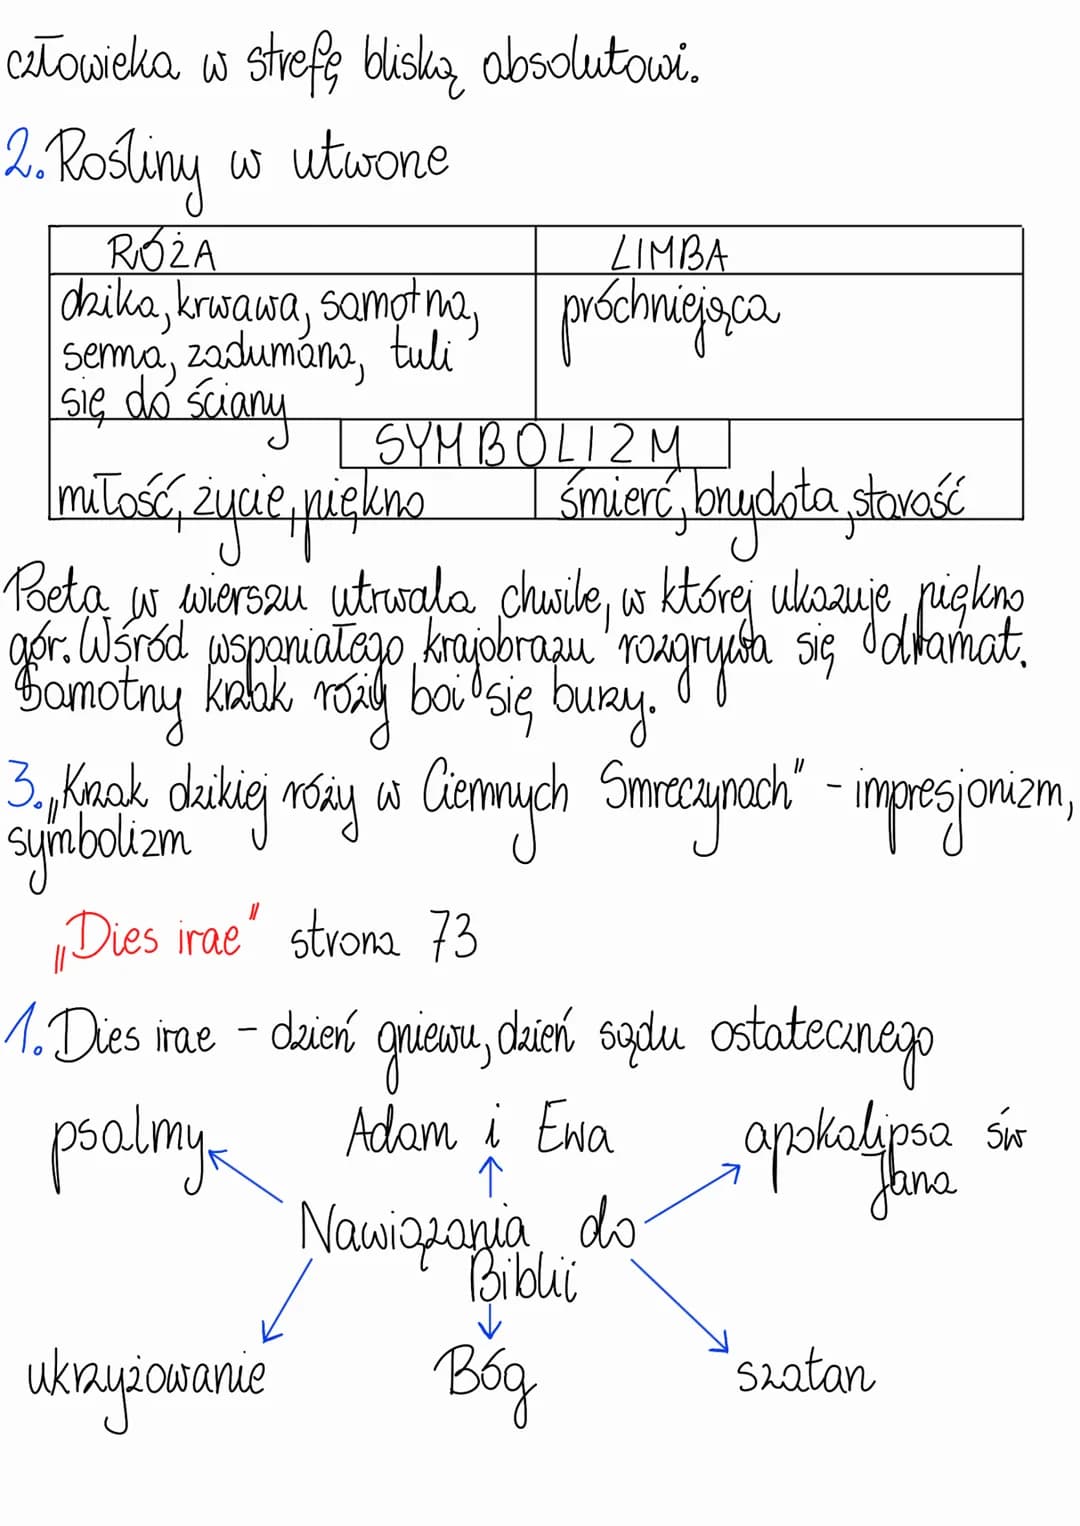 człowieka w strefę bliską absolutowi.
2. Rośliny w utworze
RÓŻA LIMBA
dzika, krwawa, samotna, próchniejąca
senna, zadumana, tuli
się do ściany
SYMBOLIZM
miłość, życie, piękno śmierć, brzydota, starość
Poeta w wierszu utrwala chwile, w której ukazuje piękno
gór. Wśród wspaniałego krajobrazu rozgrywa się dramat.
Samotny krzak róży boi się burzy.
3. „Krzak dzikiej róży w Ciemnych Smreczynach" - impresjonizm,
symbolizm
„Dies irae" strona 73
1. Dies irae - dzień gniewu, dzień sądu ostatecznego
psalmy Adam i Ewa apokalipsa św
Jana
Nawiązania do
Biblii
ukrzyżowanie Bóg szatan